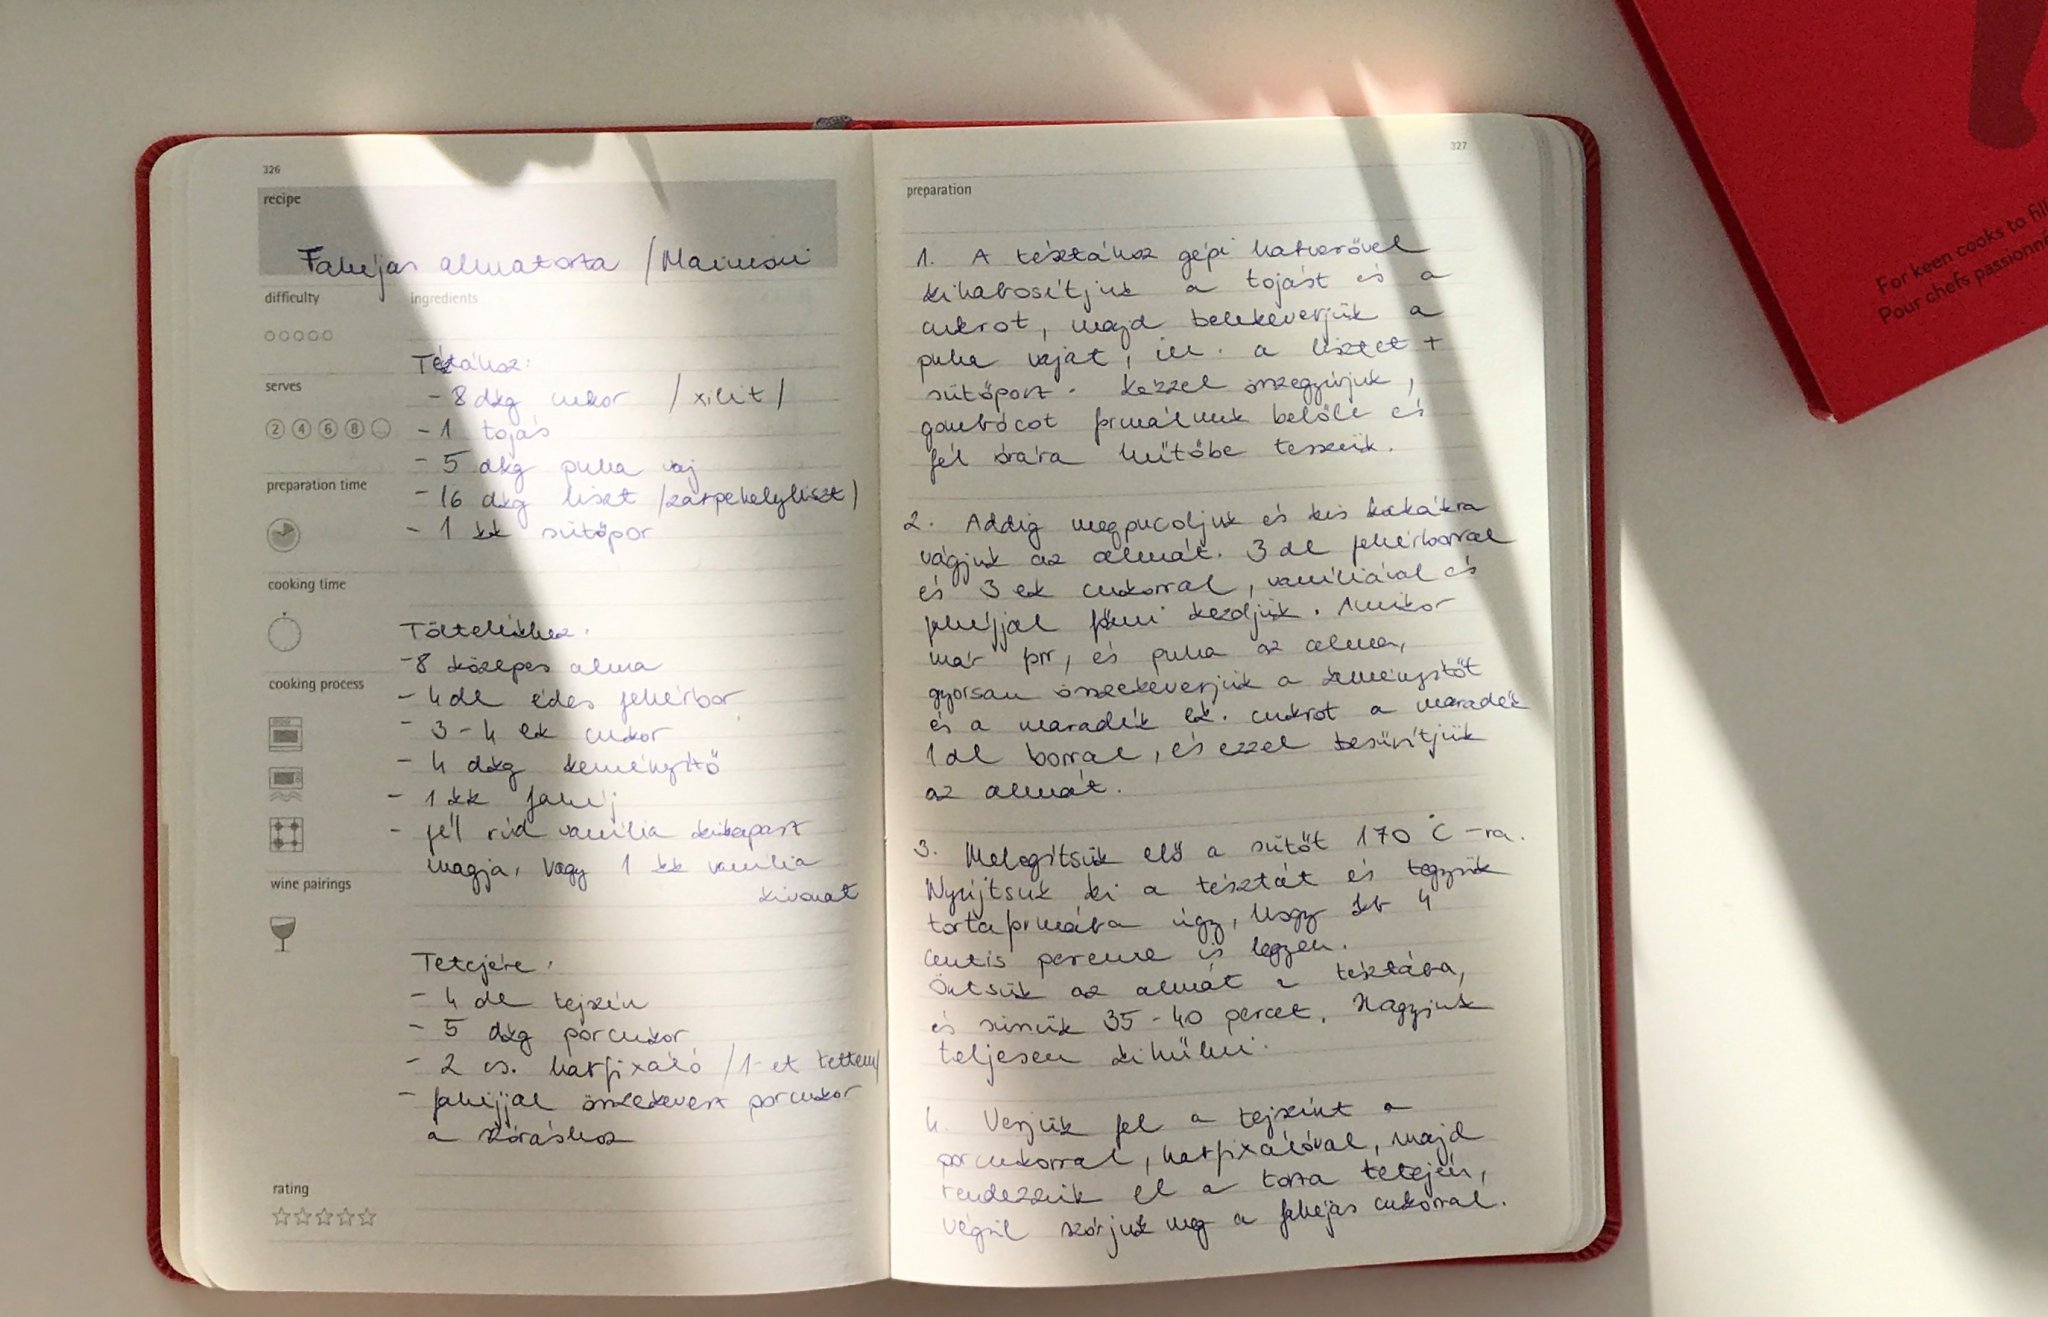 326
recipe
Fahéjas almatorta / Maimoni
difficulty
ingredients
Tésztához:
- 8 dkg cukor / xilit /
serves
2 4 6 8 ...
- 1 tojás
- 5 dkg puha vaj
preparation time
- 16 dkg liszt /zabpehelyliszt/
- 1 kk sütőpor
cooking time
Töltelékhez:
- 8 közepes alma
cooking process
- 4 dl édes fehérbor
- 3-4 ek cukor
- 4 dkg keményítő
- 1 kk fahéj
- fél rúd vanília kikapart
magja, vagy 1 kk vanília
kivonat
wine pairings
Tetejére:
- 4 dl tejszín
- 5 dkg porcukor
- 2 cs. habfixáló /1-et tettem/
- fahéjjal összekevert porcukor
a szóráshoz
rating
327
preparation
1. A tésztához gépi habverővel
kihabosítjuk a tojást és a
cukrot, majd belekeverjük a
puha vajat, ill. a lisztet +
sütőport. Kézzel összegyúrjuk,
gombócot formálunk belőle és
fél órára hűtőbe tesszük.
2. Addig megpucoljuk és kis kockákra
vágjuk az almát. 3 dl fehérborral
és 3 ek cukorral, vaníliával és
fahéjjal főzni kezdjük. Amikor
már forr, és puha az alma,
gyorsan összekeverjük a keményítőt
és a maradék ek. cukrot a maradék
1 dl borral, és ezzel besűrítjük
az almát.
3. Melegítsük elő a sütőt 170 °C-ra.
Nyújtsuk ki a tésztát és tegyük
tortaformába úgy, hogy kb 4
centis pereme is legyen.
Öntsük az almát a tésztába,
és süssük 35-40 percet. Hagyjuk
teljesen kihűlni.
4. Verjük fel a tejszínt a
porcukorral, habfixálóval, majd
rendezzük el a torta tetején,
végül szórjuk meg a fahéjas cukorral.
For keen cooks to fill
Pour chefs passionné